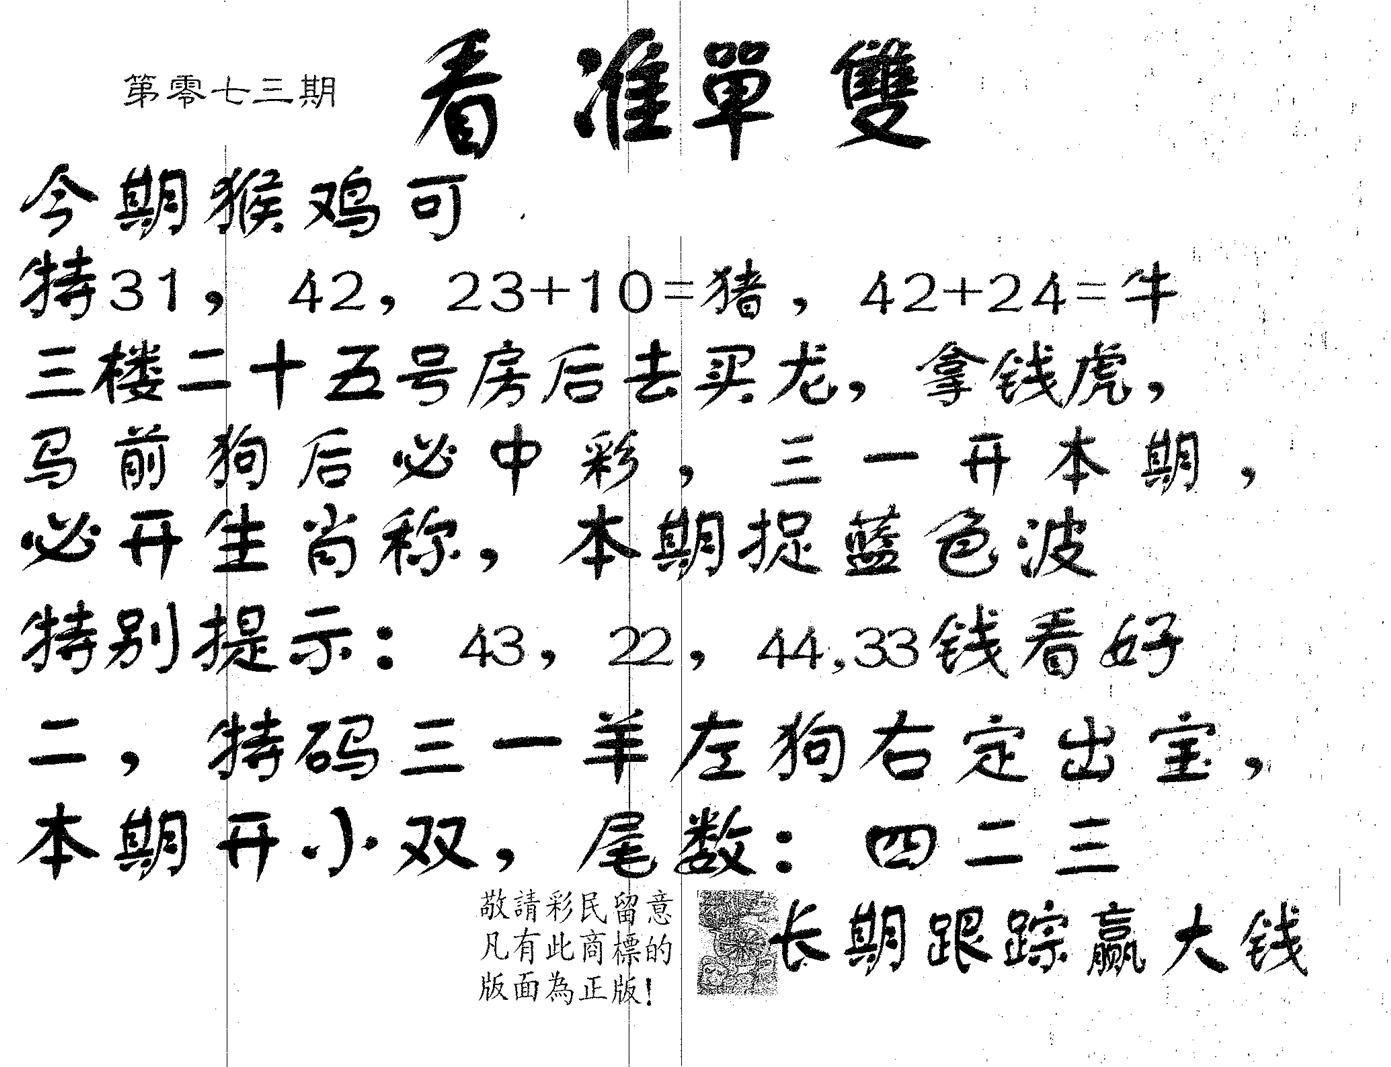 第零七三期
看准單雙
今期猴鸡可
特31，42，23+10=猪，42+24=牛
三楼二十五号房后去买龙，拿钱虎，
马前狗后必中彩，三一开本期，
必开生肖称，本期捉蓝色波
特别提示：43，22，44,33钱看好
二，特码三一羊左狗右定出宝，
本期开小双，尾数：四二三
敬請彩民留意
凡有此商標的
版面為正版!
长期跟踪赢大钱